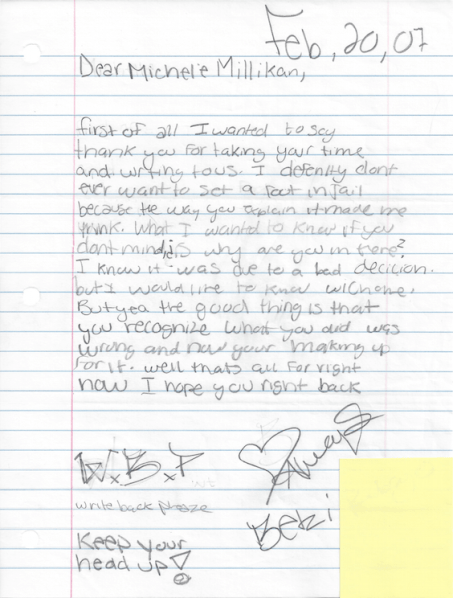 Feb, 20, 07
Dear Michele Millikan,
first of all I wanted to say
thank you for taking your time
and writing to us. I defenitly dont
ever want to set a foot in Jail
because the way you explain it made me
think. What I wanted to know if you
dont mind, is why are you in there?
I know it was due to a bad decition.
but I would like to know wichone.
But yea the good thing is that
you recognize what you did was
wrong and now your making up
for it. well thats all for right
now I hope you right back
W.B.P
write back pleaze
Keep your
head up!
Beki